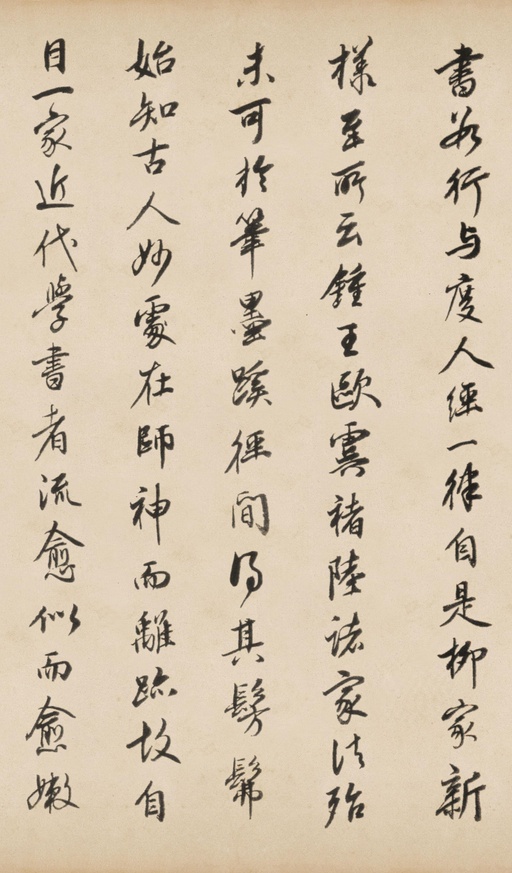 書若行与度人經一律自是柳家新
様至所云鍾王歐虞褚陸諸家法殆
未可於筆墨蹊徑間得其髣髴
始知古人妙處在師神而離跡故自
目一家近代學書者流愈似而愈嫩